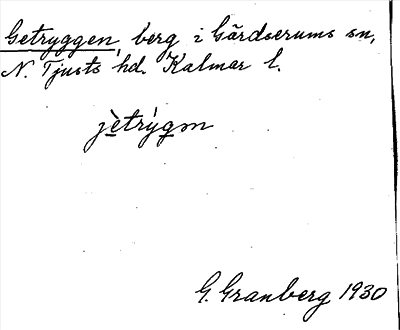 Getryggen, berg i Gärdserums sn,
N. Tjusts hd. Kalmar l.
jètrýgm
G. Granberg 1930